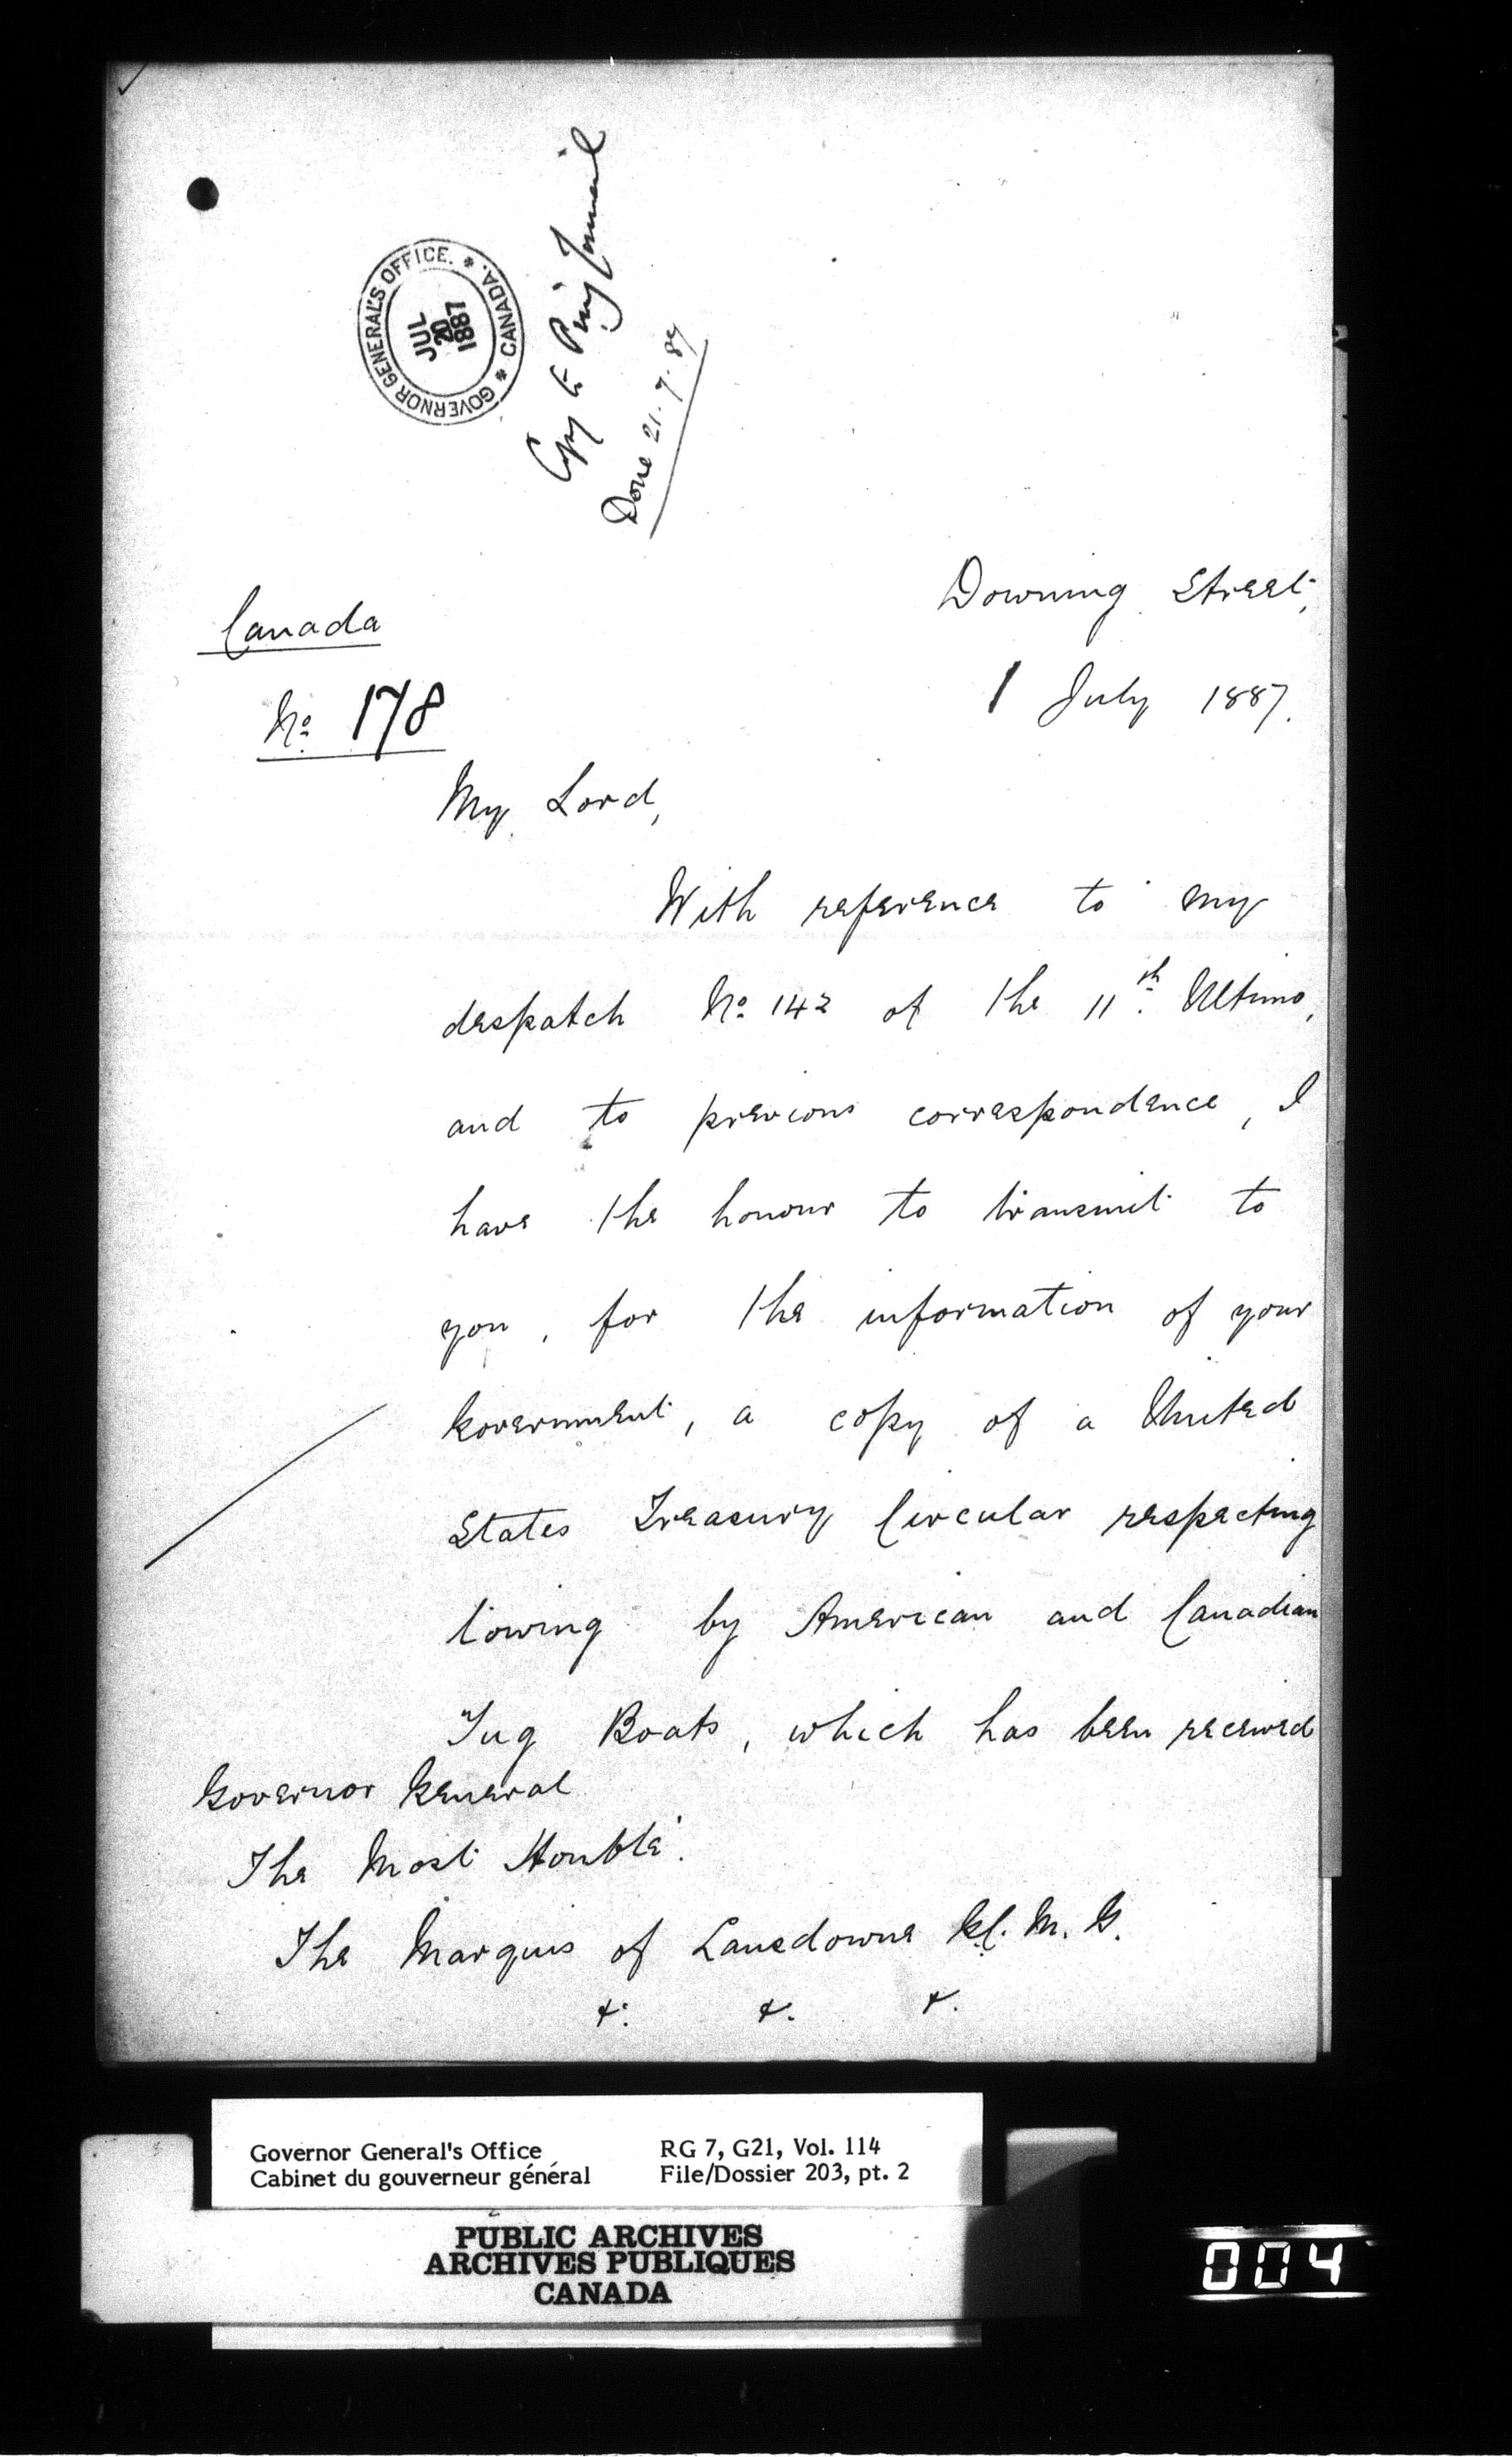 GOVERNOR GENERAL'S OFFICE. * CANADA. *
JUL
20
1887
Copy to Privy Council
Done 21.7.87
Canada
No 178
Downing Street,
1 July 1887.
My Lord,
With reference to my
despatch No 142 of the 11th Ultimo,
and to previous correspondence, I
have the honour to transmit to
you, for the information of your
Government, a copy of a United
States Treasury Circular respecting
towing by American and Canadian
Tug Boats, which has been received
Governor General
The Most Honble.
The Marquis of Lansdowne G.C.M.G.
&. &. &.
Governor General's Office
Cabinet du gouverneur général
RG 7, G21, Vol. 114
File/Dossier 203, pt. 2
PUBLIC ARCHIVES
ARCHIVES PUBLIQUES
CANADA
004